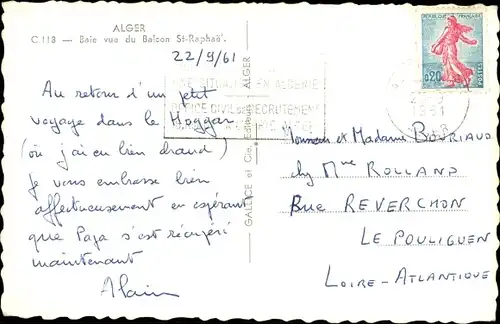 ALGER
C.118 — Baie vue du Balcon St-Raphaël.
22/9/61
RÉPUBLIQUE FRANÇAISE
0,20
POSTES
EN ALGERIE
OFFICE CIVIL DE RECRUTEMENT
GALLICE et Cie, Editeurs - ALGER
Au retour d'un petit
voyage dans le Hoggar
(où j'ai eu bien chaud)
je vous embrasse bien
affectueusement en espérant
que Papa s'est récupéré
maintenant
Alain
Monsieur et Madame BOURIAUD
chez Mme ROLLAND
Rue REVERCHON
LE POULIGUEN
LOIRE-ATLANTIQUE